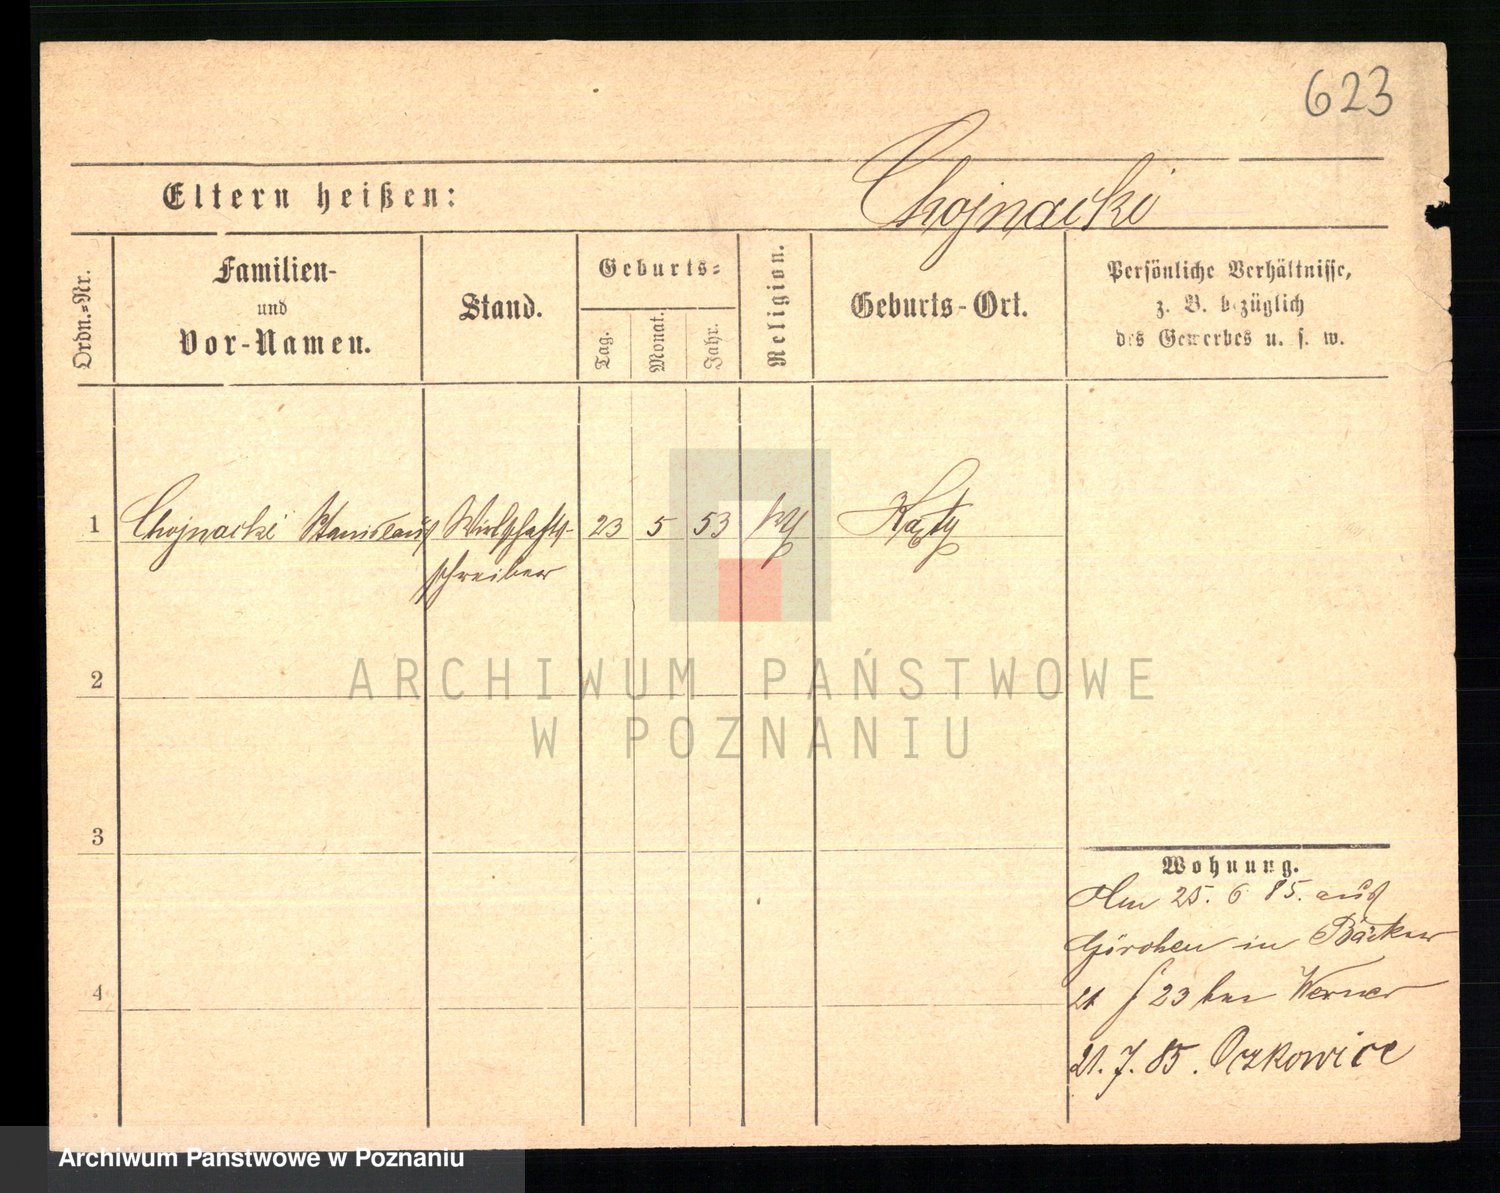 623
Eltern heißen:
Chojnacki
Ordn.-Nr.
Familien-
und
Vor-Namen.
Stand.
Geburts-
Tag.
Monat.
Jahr.
Religion.
Geburts-Ort.
Persönliche Verhältnisse,
z. B. bezüglich
des Gewerbes u. s. w.
1
Chojnacki Stanislaus
Wirthschafts-
schreiber
23
5
53
Kąty
2
ARCHIWUM PAŃSTWOWE
W POZNANIU
3
4
Wohnung.
25. 6 85. aus
Görchen in Bäcker
23 bei Werner
21. 7. 85. Oczkowice
Archiwum Państwowe w Poznaniu